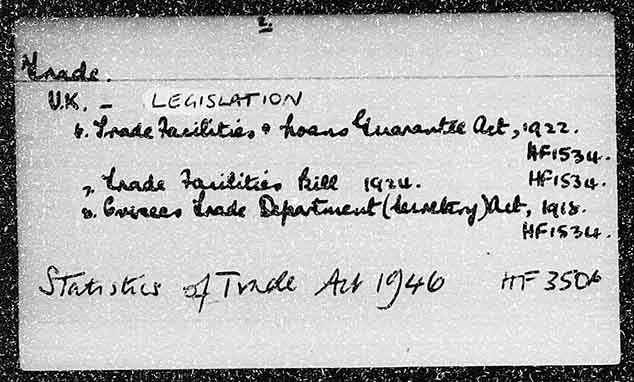 2.
Trade.
U.K. - LEGISLATION
6. Trade Facilities & Loans Guarantee Act, 1922.
HF1534.
7. Trade Facilities Bill 1924. HF1534.
8. Overseas Trade Department (Secretary) Act, 1918.
HF1534.
Statistics of Trade Act 1946 HF 3506